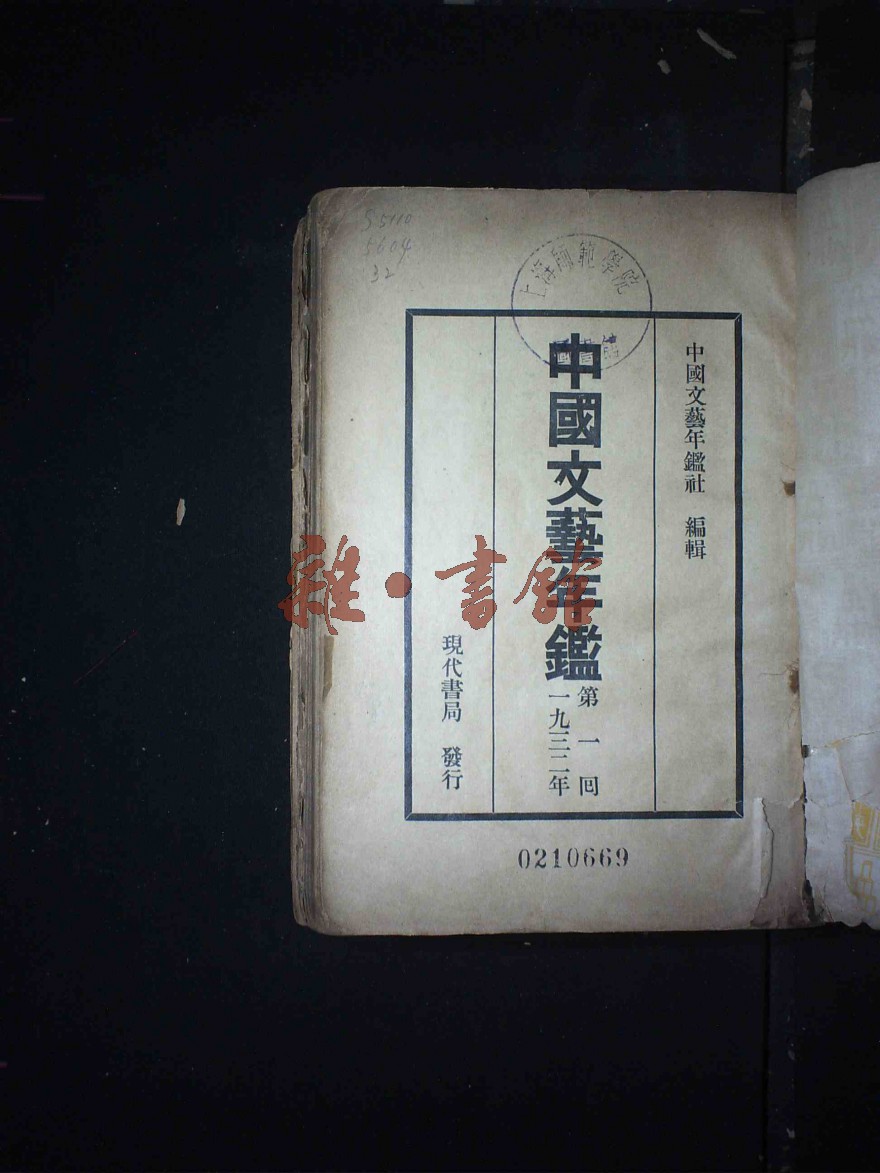 S5110
5604
32
上海師範學院
圖書館
中國文藝年鑑社 編輯
中國文藝年鑑
第一回
一九三二年
現代書局 發行
雜·書館
0210669